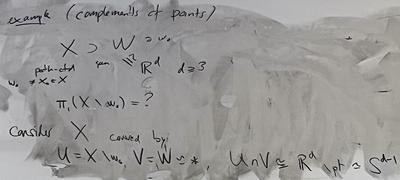 example (complements of points)
X ⊃ W ∋ w₀
path-ctd open ≅ ℝᵈ d≥3
w₀ ≠ x₀ ∈ X
π₁(X \ w₀) = ?
Consider X covered by
U = X \ w₀, V = W ≃ *, U∩V ≅ ℝᵈ \ pt ≃ Sᵈ⁻¹